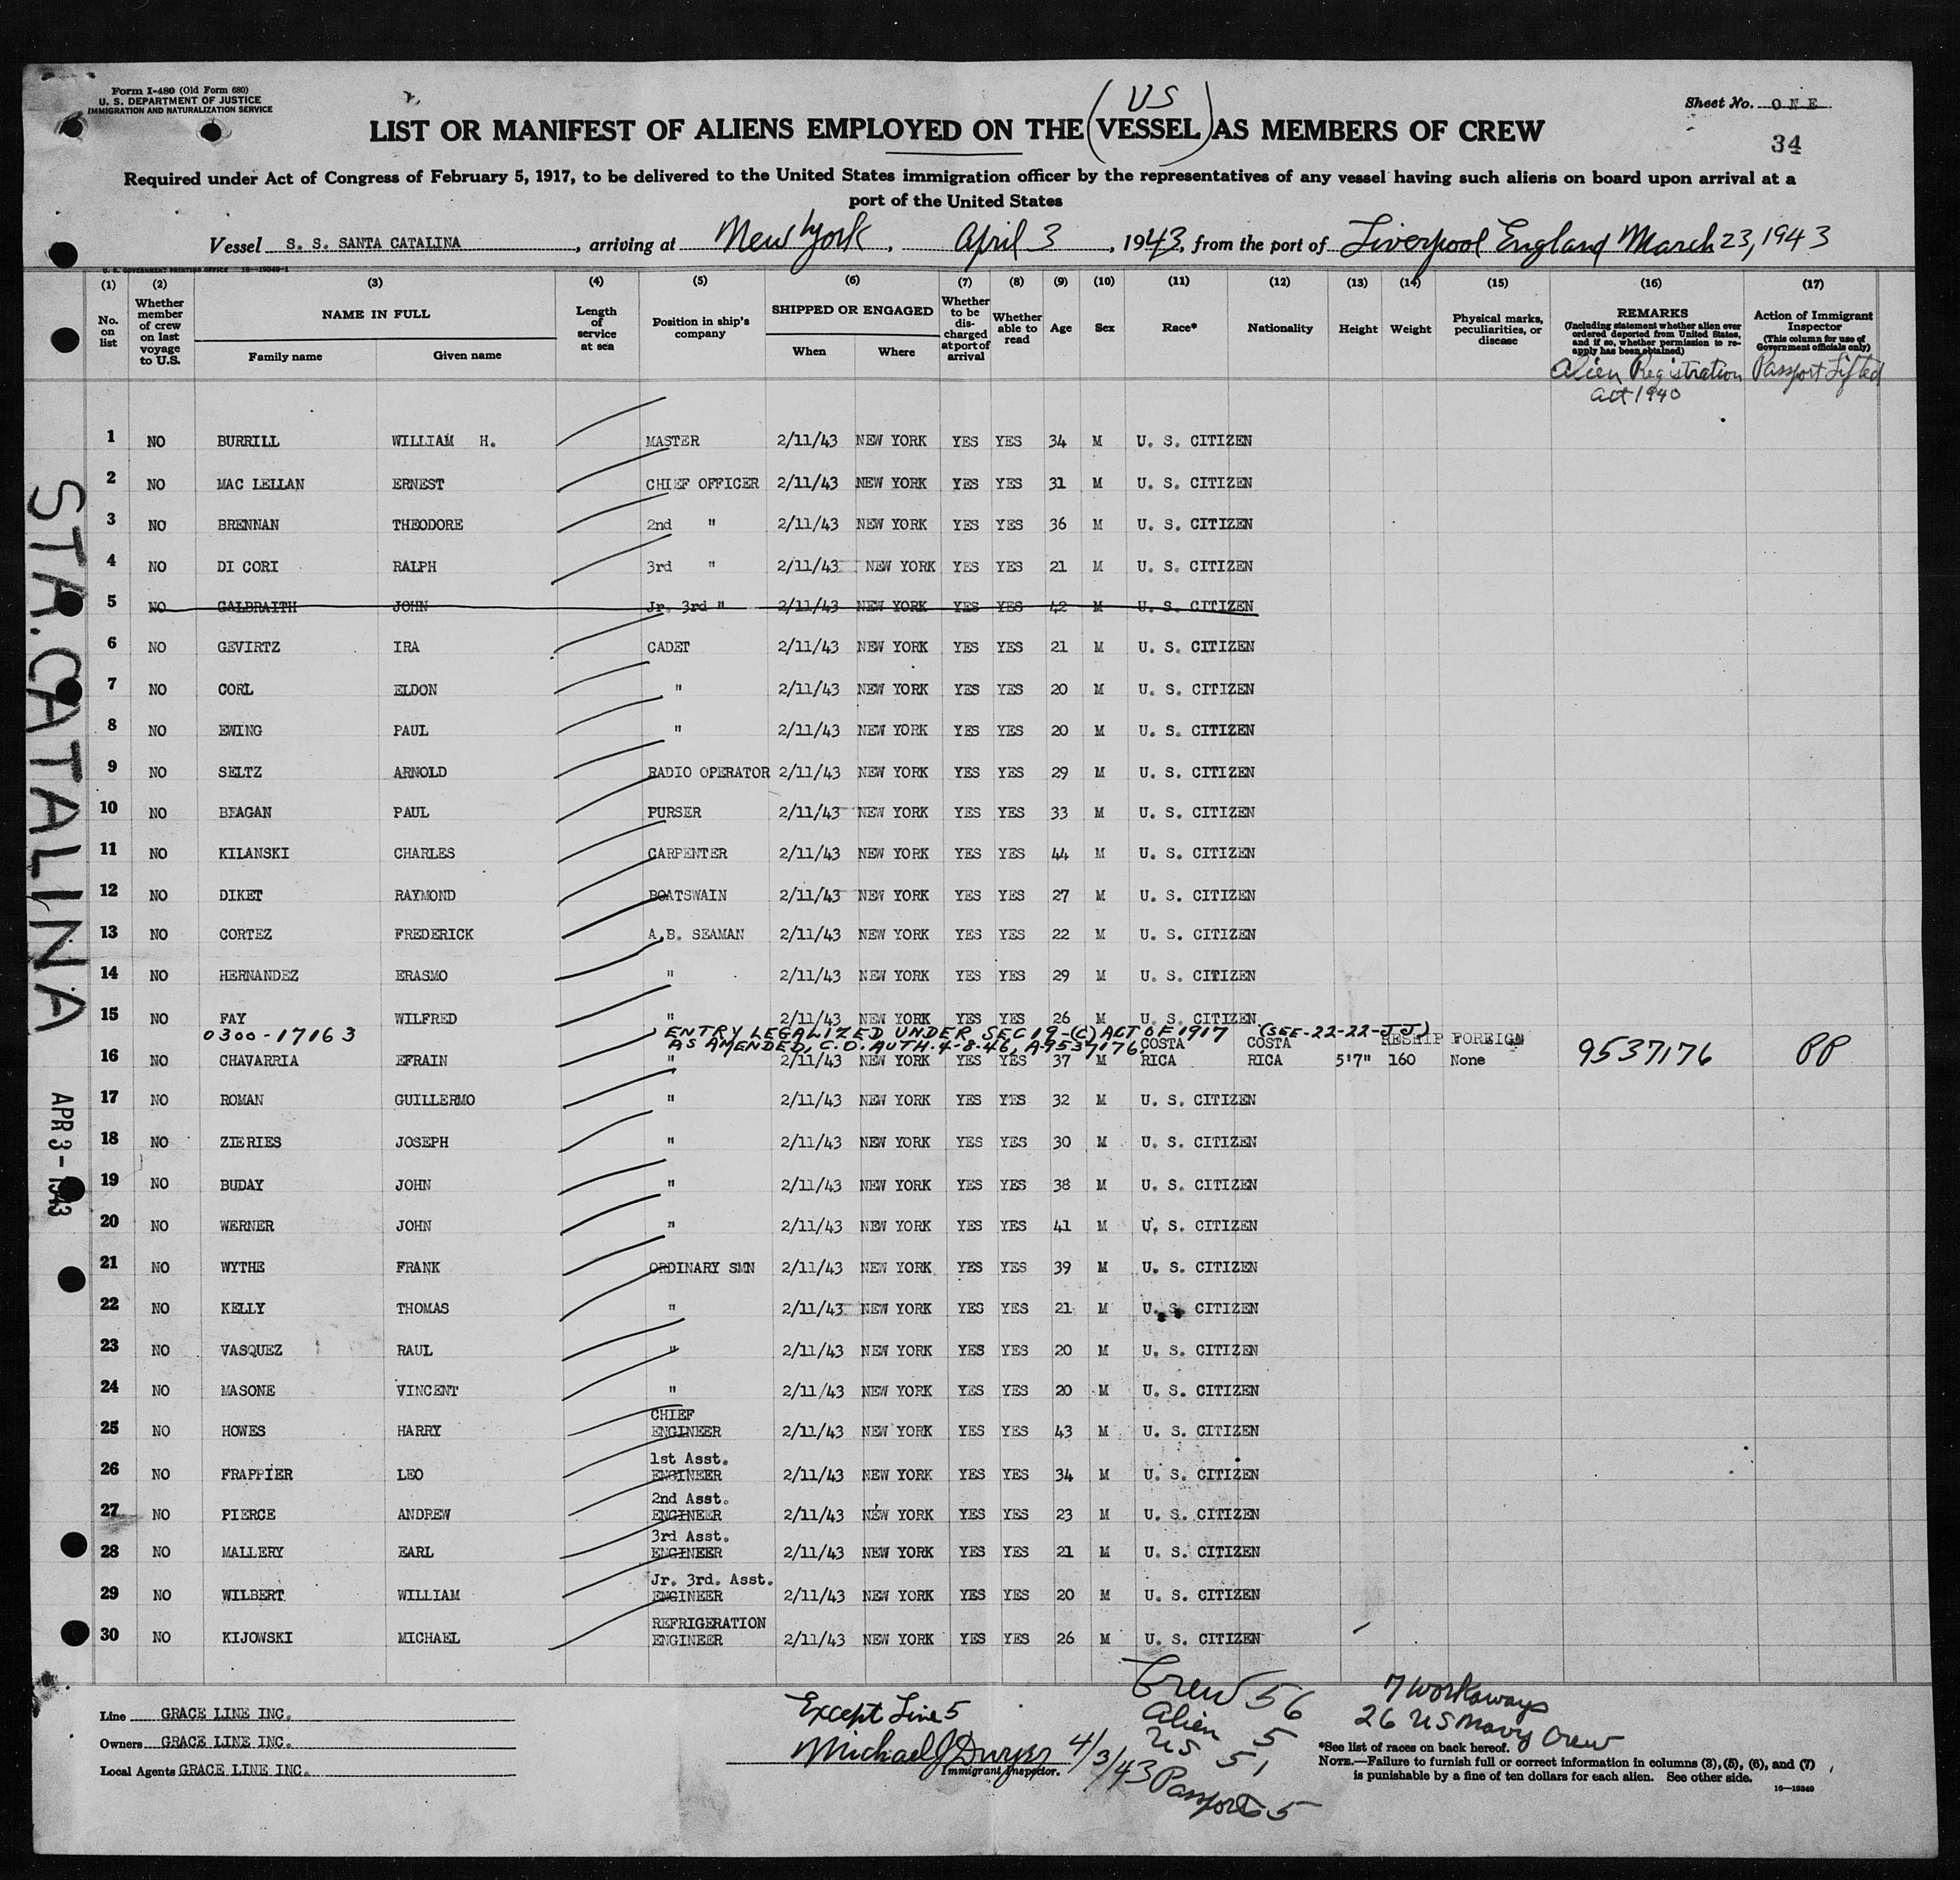 Form I-480 (Old Form 680)
U. S. DEPARTMENT OF JUSTICE
IMMIGRATION AND NATURALIZATION SERVICE
Sheet No. ONE
34
US
LIST OR MANIFEST OF ALIENS EMPLOYED ON THE (VESSEL) AS MEMBERS OF CREW
Required under Act of Congress of February 5, 1917, to be delivered to the United States immigration officer by the representatives of any vessel having such aliens on board upon arrival at a
port of the United States
Vessel S. S. SANTA CATALINA, arriving at New York, April 3, 1943, from the port of Liverpool England March 23, 1943
U. S. GOVERNMENT PRINTING OFFICE 16—19349-1
(1) (2) (3) (4) (5) (6) (7) (8) (9) (10) (11) (12) (13) (14) (15) (16) (17)
No. on list
Whether member of crew on last voyage to U.S.
NAME IN FULL
Family name Given name
Length of service at sea
Position in ship's company
SHIPPED OR ENGAGED
When Where
Whether to be discharged at port of arrival
Whether able to read
Age Sex Race* Nationality Height Weight
Physical marks, peculiarities, or disease
REMARKS
(Including statement whether alien ever ordered deported from United States, and if so, whether permission to reapply has been obtained)
Action of Immigrant Inspector
(This column for use of Government officials only)
Alien Registration Act 1940
Passport Lifted
1 NO BURRILL WILLIAM H. MASTER 2/11/43 NEW YORK YES YES 34 M U. S. CITIZEN
2 NO MAC LELLAN ERNEST CHIEF OFFICER 2/11/43 NEW YORK YES YES 31 M U. S. CITIZEN
3 NO BRENNAN THEODORE 2nd " 2/11/43 NEW YORK YES YES 36 M U. S. CITIZEN
4 NO DI CORI RALPH 3rd " 2/11/43 NEW YORK YES YES 21 M U. S. CITIZEN
5 NO GALBRAITH JOHN Jr. 3rd " 2/11/43 NEW YORK YES YES 42 M U. S. CITIZEN
6 NO GEVIRTZ IRA CADET 2/11/43 NEW YORK YES YES 21 M U. S. CITIZEN
7 NO CORL ELDON " 2/11/43 NEW YORK YES YES 20 M U. S. CITIZEN
8 NO EWING PAUL " 2/11/43 NEW YORK YES YES 20 M U. S. CITIZEN
9 NO SELTZ ARNOLD RADIO OPERATOR 2/11/43 NEW YORK YES YES 29 M U. S. CITIZEN
10 NO BEAGAN PAUL PURSER 2/11/43 NEW YORK YES YES 33 M U. S. CITIZEN
11 NO KILANSKI CHARLES CARPENTER 2/11/43 NEW YORK YES YES 44 M U. S. CITIZEN
12 NO DIKET RAYMOND BOATSWAIN 2/11/43 NEW YORK YES YES 27 M U. S. CITIZEN
13 NO CORTEZ FREDERICK A.B. SEAMAN 2/11/43 NEW YORK YES YES 22 M U. S. CITIZEN
14 NO HERNANDEZ ERASMO " 2/11/43 NEW YORK YES YES 29 M U. S. CITIZEN
15 NO FAY WILFRED " 2/11/43 NEW YORK YES YES 26 M U. S. CITIZEN
0300-17163 ENTRY LEGALIZED UNDER SEC 19-(C) ACT OF 1917 (SEE-22-22-JJ)
AS AMENDED, C.O. AUTH. 4-8-46, A-9537176 RESHIP FOREIGN
16 NO CHAVARRIA EFRAIN " 2/11/43 NEW YORK YES YES 37 M COSTA RICA COSTA RICA 5'7" 160 None 9537176 PP
17 NO ROMAN GUILLERMO " 2/11/43 NEW YORK YES YES 32 M U. S. CITIZEN
18 NO ZIERIES JOSEPH " 2/11/43 NEW YORK YES YES 30 M U. S. CITIZEN
19 NO BUDAY JOHN " 2/11/43 NEW YORK YES YES 38 M U. S. CITIZEN
20 NO WERNER JOHN " 2/11/43 NEW YORK YES YES 41 M U. S. CITIZEN
21 NO WYTHE FRANK ORDINARY SMN 2/11/43 NEW YORK YES YES 39 M U. S. CITIZEN
22 NO KELLY THOMAS " 2/11/43 NEW YORK YES YES 21 M U. S. CITIZEN
23 NO VASQUEZ RAUL " 2/11/43 NEW YORK YES YES 20 M U. S. CITIZEN
24 NO MASONE VINCENT " 2/11/43 NEW YORK YES YES 20 M U. S. CITIZEN
25 NO HOWES HARRY CHIEF ENGINEER 2/11/43 NEW YORK YES YES 43 M U. S. CITIZEN
26 NO FRAPPIER LEO 1st Asst. ENGINEER 2/11/43 NEW YORK YES YES 34 M U. S. CITIZEN
27 NO PIERCE ANDREW 2nd Asst. ENGINEER 2/11/43 NEW YORK YES YES 23 M U. S. CITIZEN
28 NO MALLERY EARL 3rd Asst. ENGINEER 2/11/43 NEW YORK YES YES 21 M U. S. CITIZEN
29 NO WILBERT WILLIAM Jr. 3rd. Asst. ENGINEER 2/11/43 NEW YORK YES YES 20 M U. S. CITIZEN
30 NO KIJOWSKI MICHAEL REFRIGERATION ENGINEER 2/11/43 NEW YORK YES YES 26 M U. S. CITIZEN
STA. CATALINA
APR 3 - 1943
Line GRACE LINE INC.
Owners GRACE LINE INC.
Local Agents GRACE LINE INC.
Except Line 5
Michael J Dwyer 4/3/43
Immigrant Inspector.
Crew 56
Alien 5
US 51
Passports 5
7 Workaways
26 US Navy Crew
*See list of races on back hereof.
NOTE.—Failure to furnish full or correct information in columns (3), (5), (6), and (7)
is punishable by a fine of ten dollars for each alien. See other side.
16—19349